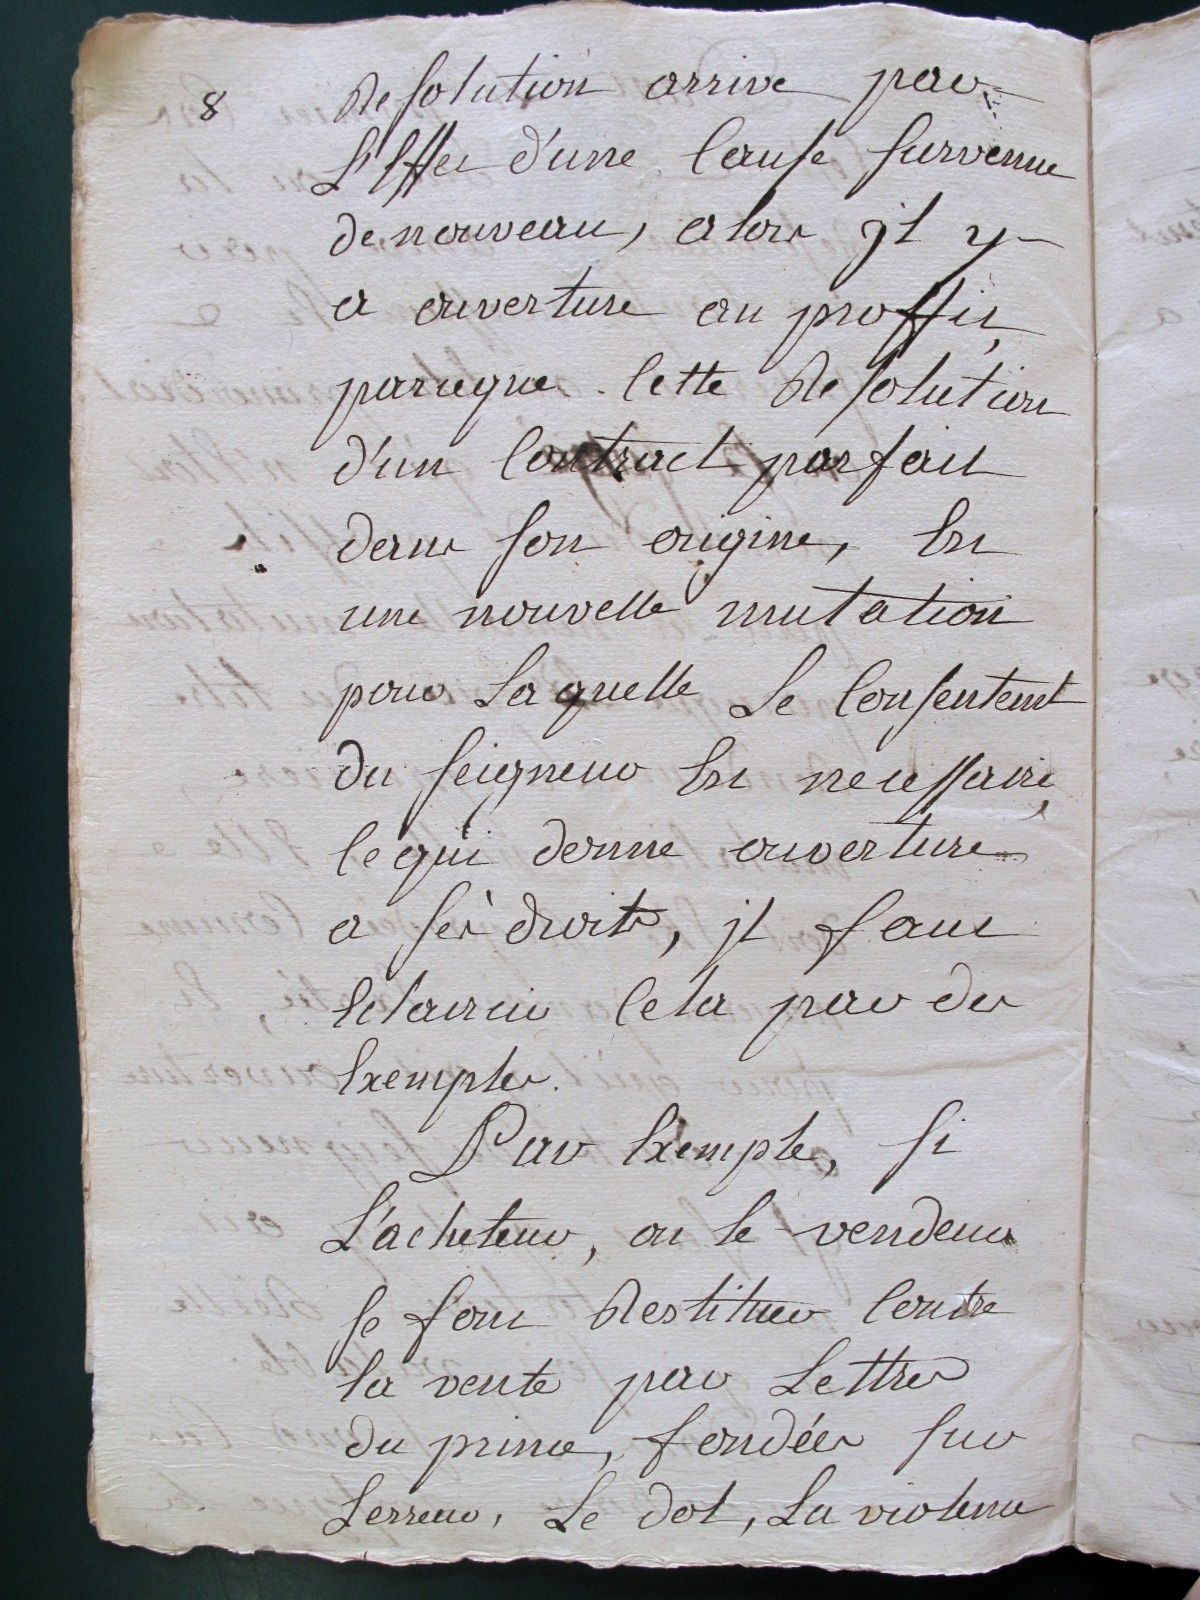 8
Resolution arrive par
L'Effet d'une Cause survenue
de nouveau, alors jl y
a ouverture au proffit,
parceque Cette Resolution
d'un Contract parfait
dans son origine, Est
une nouvelle mutation
pour Laquelle Le Consentemt
du seigneur Est necessaire,
Ce qui donne ouverture
a ses droits, jl faut
Eclaircir Cela par des
Exemples.
Par Exemple, si
L'acheteur, ou le vendeur
se font Restituer Contre
la vente par Lettres
du prince, fondées sur
Lerreur, Le dol, La violence